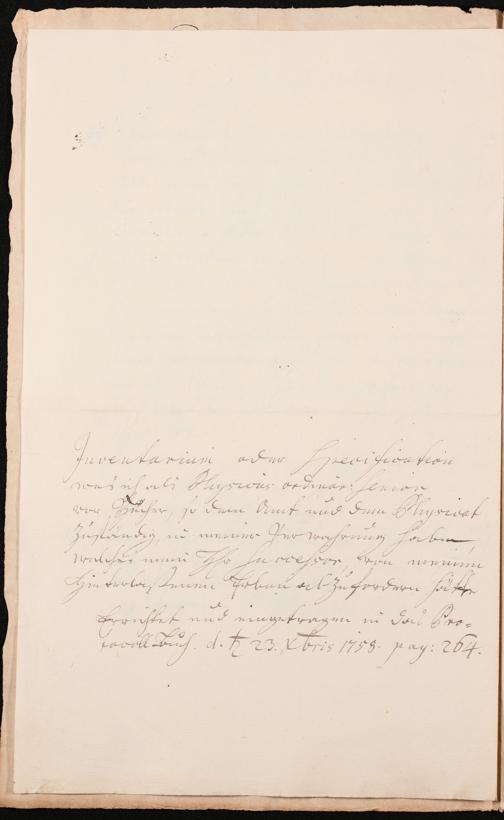 Inventarium oder Specification
was ich als Physicus ordinar: senior
vor Bücher, so dem Amt und dem Physicat
zuständig, in meiner Verwahrung habe
welche mein Successor von meinen
hinterlassenen Erben abzufordern hätte
Errichtet und eingetragen in das Pro-
tocoll Buch. d. ♄ 23. Xbris 1758. pag: 264.